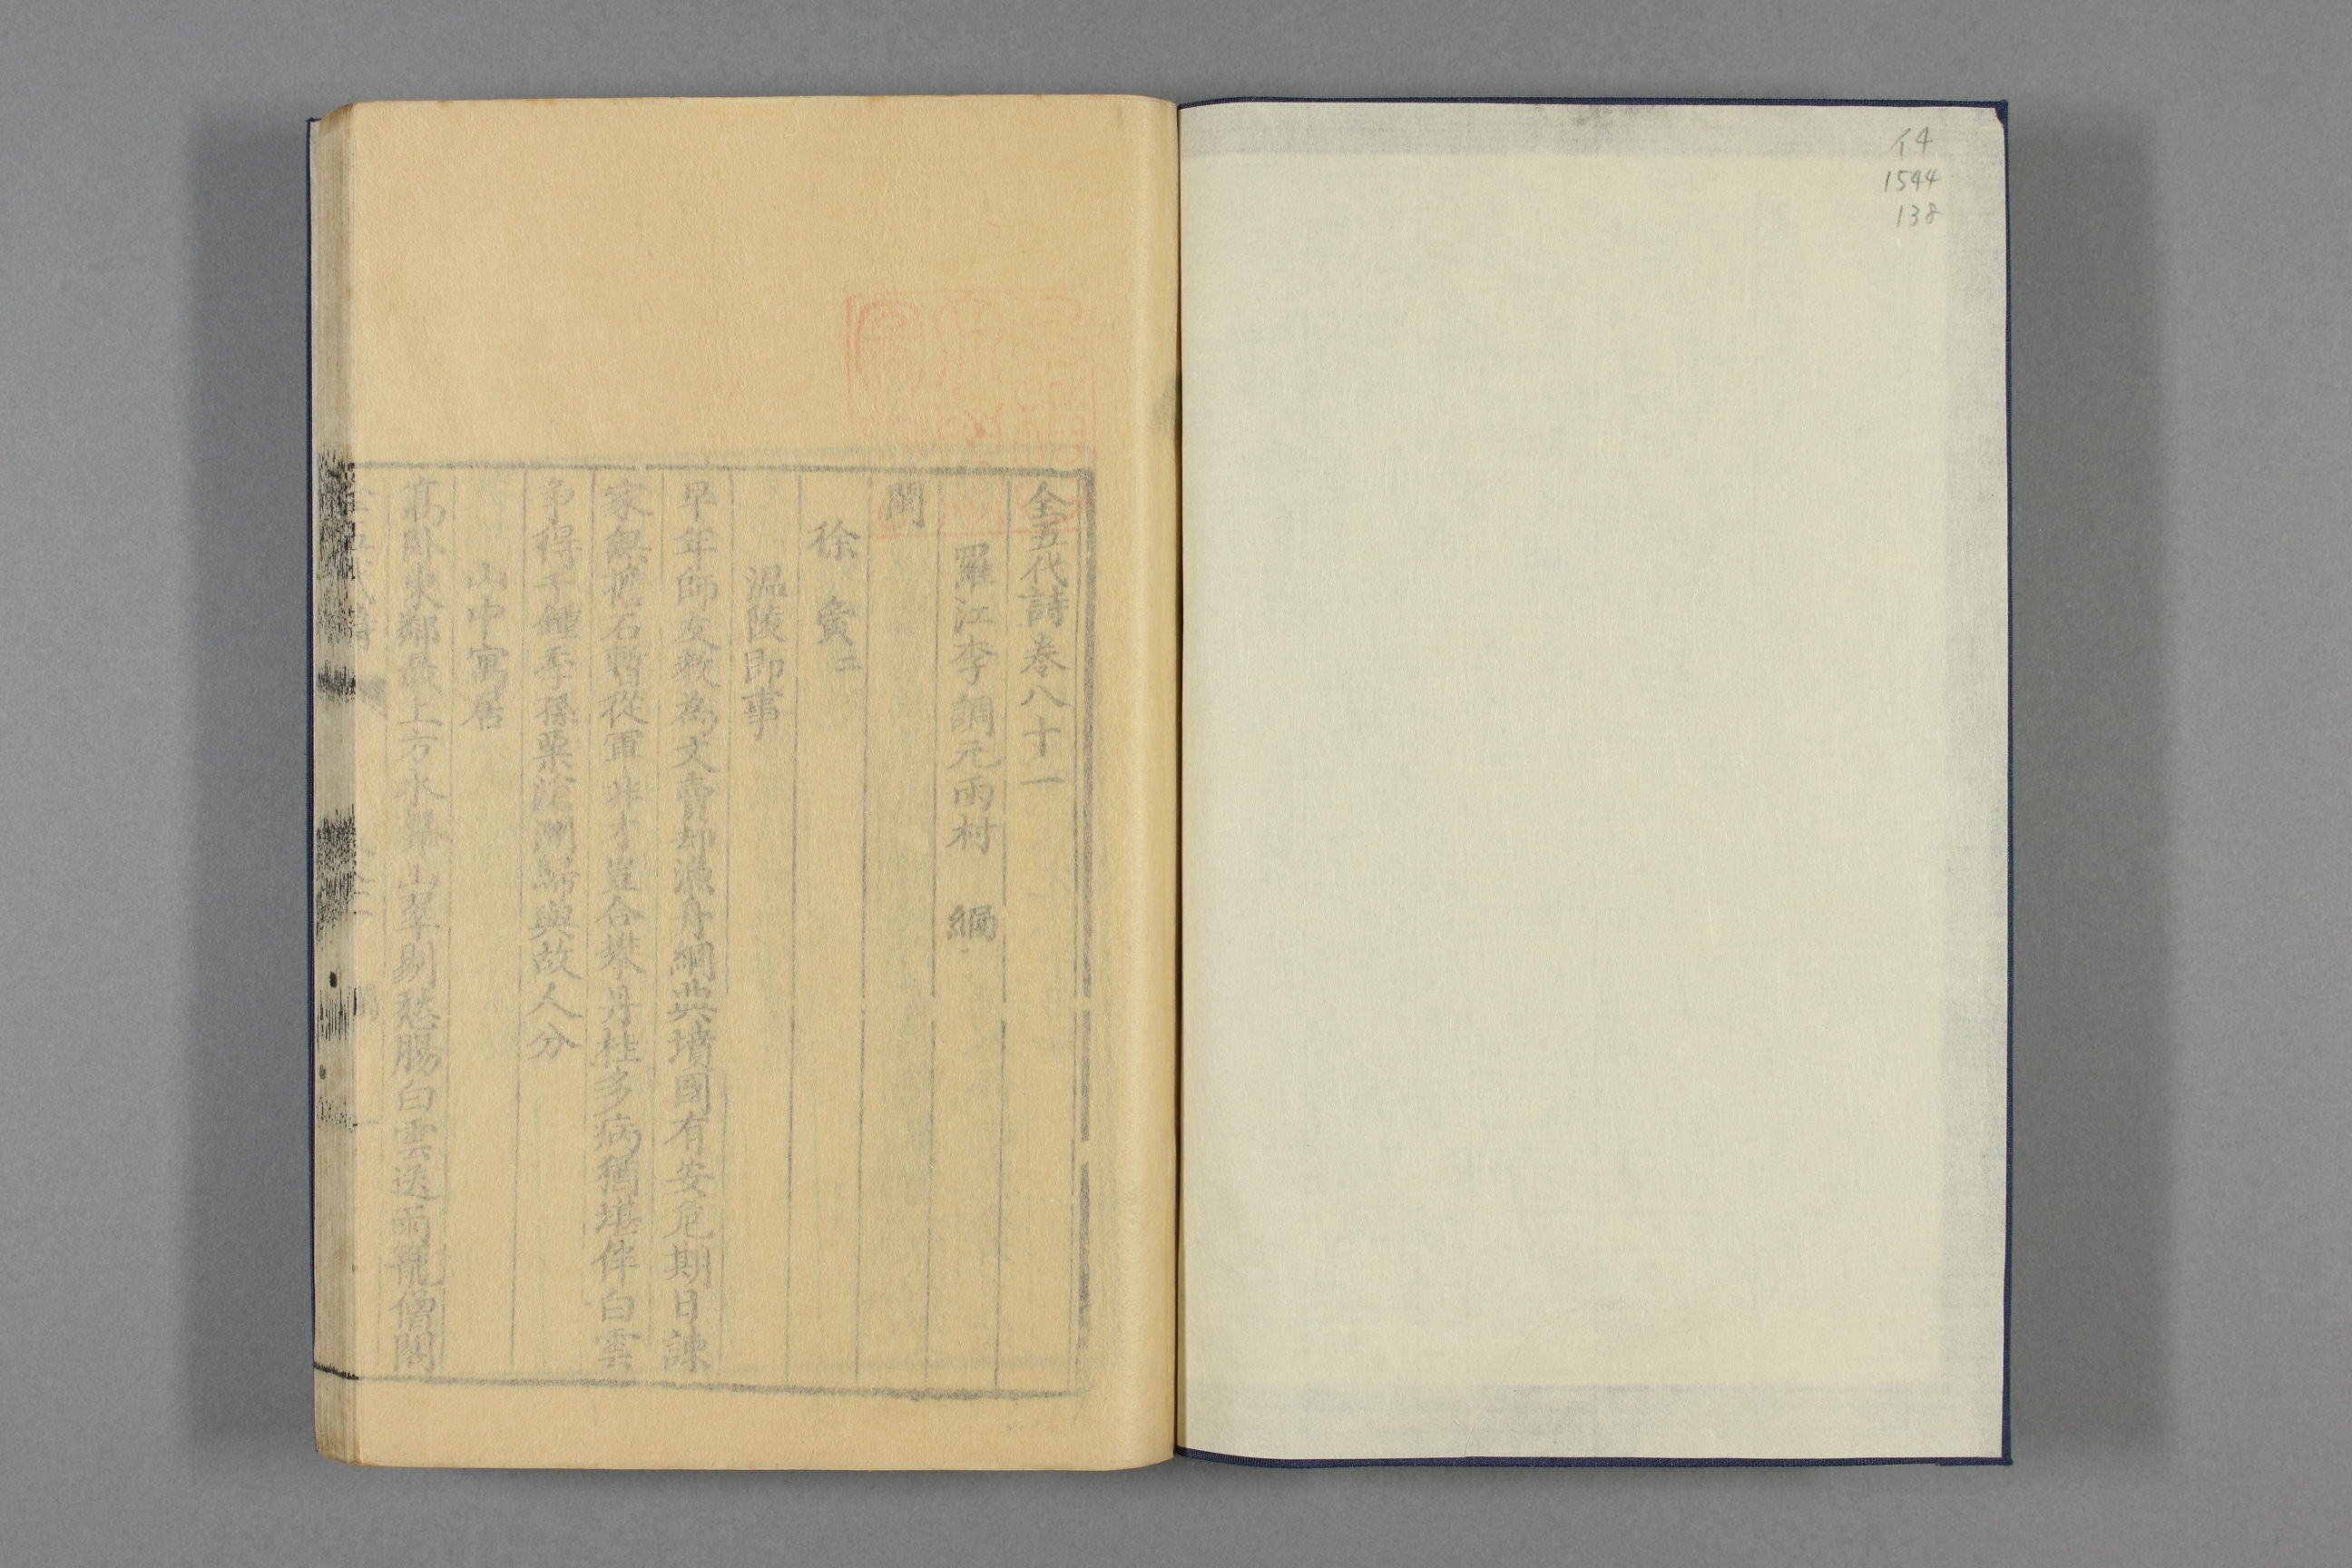 イ4
1544
138
全五代詩卷八十一
羅江李調元雨村 編
閩
徐 夤二
温陵即事
早年師友教為文賣却漁舟網典墳國有安危期日諫
家無擔石暫從軍非才豈合攀丹桂多病猶堪伴白雲
争得千鍾季孫粟滄洲歸與故人分
山中寓居
高卧東鄰最上方水聲山翠剔愁腸白雲送雨籠僧閣